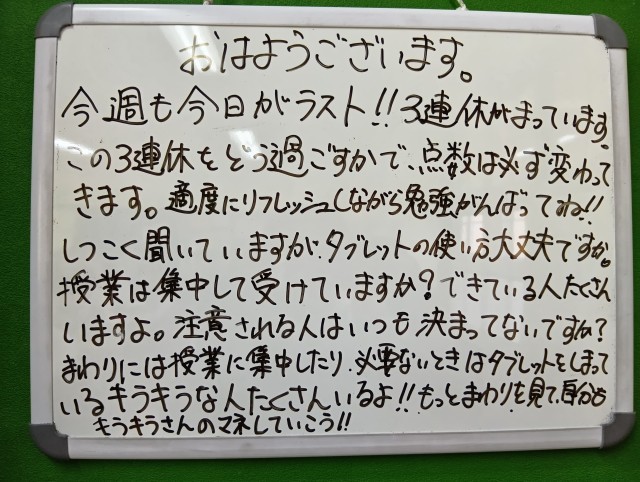 おはようございます。
今週も今日がラスト!!3連休がまっています。
この3連休をどう過ごすかで、点数は必ず変わって
きます。適度にリフレッシュしながら勉強がんばってね!!
しつこく聞いていますが、タブレットの使い方大丈夫ですか。
授業は集中して受けていますか?できている人たくさん
いますよ。注意される人はいつも決まってないですか?
まわりには授業に集中したり、必要ないときはタブレットをしまって
いるキラキラな人たくさんいるよ!!もっとまわりを見て、自分も
キラキラさんのマネしていこう!!